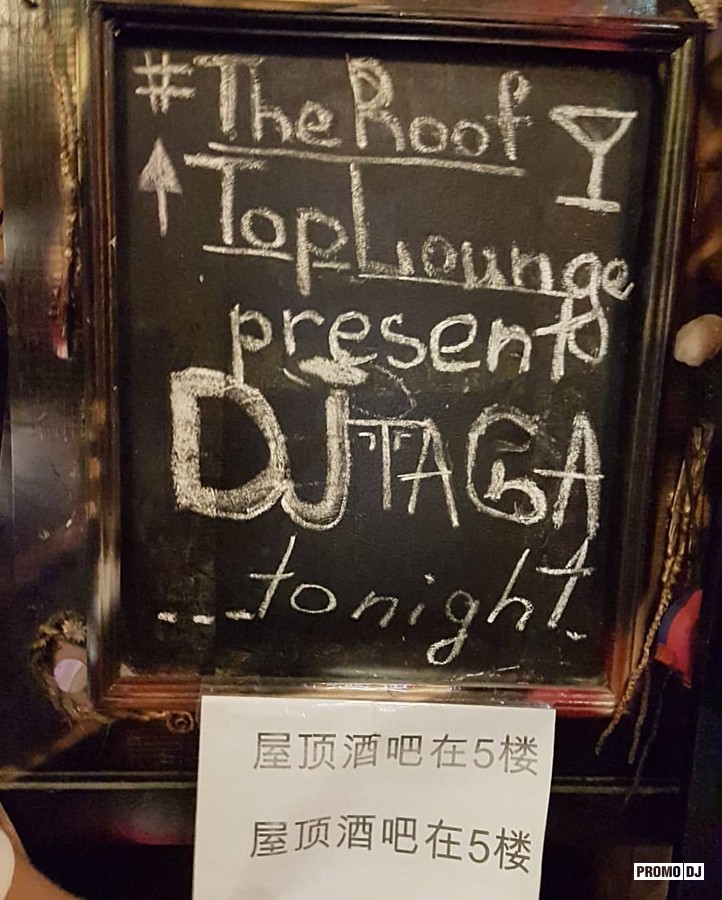 #The Roof
Top Lounge
presents
DJ TAGA
...tonight.
屋顶酒吧在5楼
屋顶酒吧在5楼
PROMO DJ